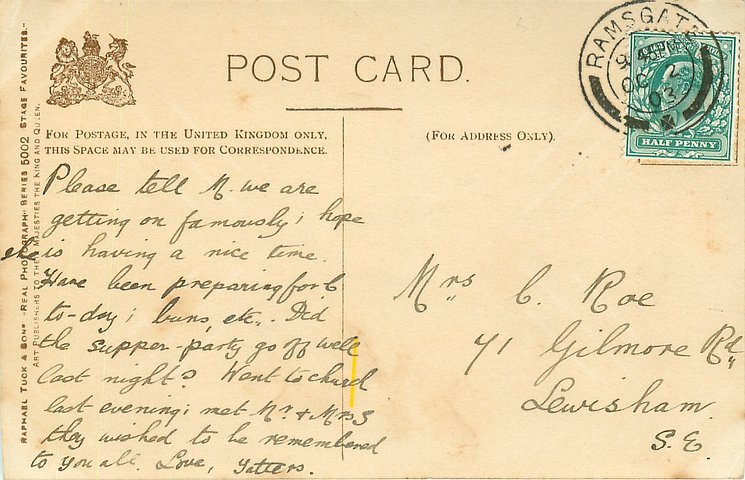 POST CARD.
FOR POSTAGE, IN THE UNITED KINGDOM ONLY,
THIS SPACE MAY BE USED FOR CORRESPONDENCE.
(FOR ADDRESS ONLY).
RAMSGATE
OC 2
03
HALF PENNY
RAPHAEL TUCK & SONS' "REAL PHOTOGRAPH" SERIES 6002 STAGE FAVOURITES.
ART PUBLISHERS TO THEIR MAJESTIES THE KING AND QUEEN.
Please tell M. we are
getting on famously; hope
she is having a nice time.
Have been preparing for b
to-day; buns, etc. Did
the supper-party go off well
last night? Went to church
last evening; met Mr & Mrs S
they wished to be remembered
to you all. Love, Yatters.
Mrs C. Roe
71 Gilmore Rd,
Lewisham.
S.E.